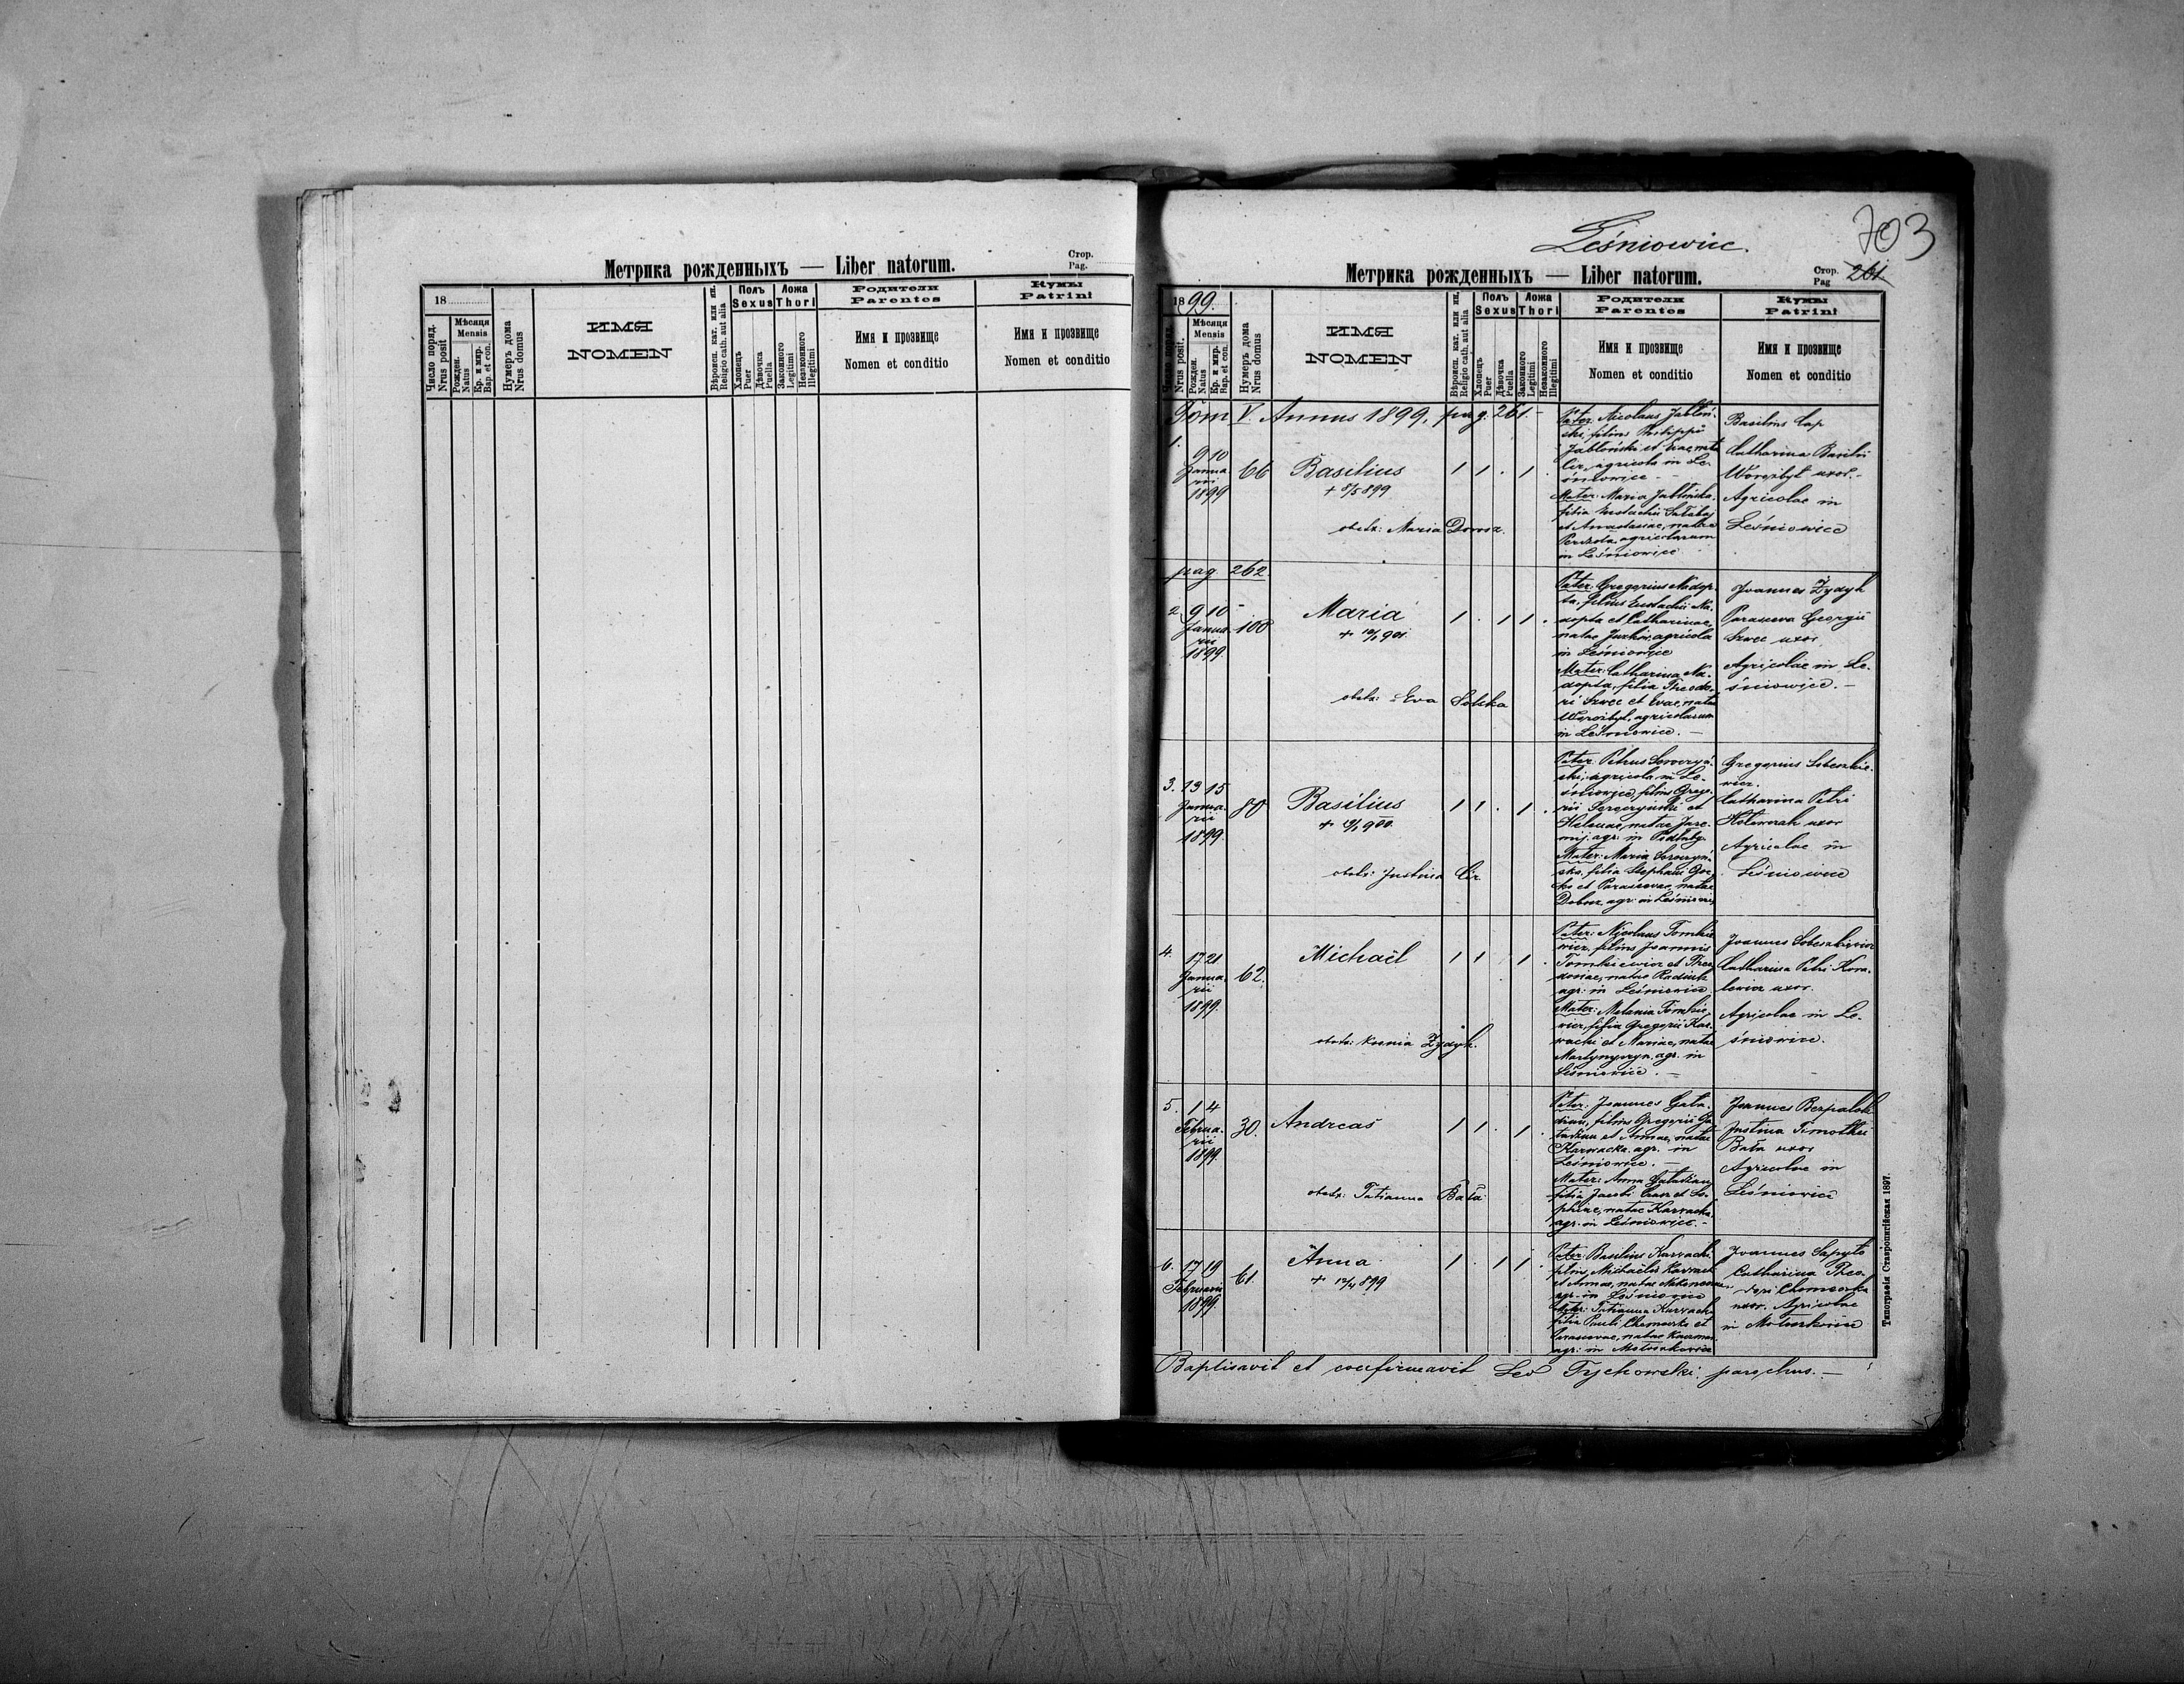 Метрика рожденныхъ — Liber natorum.
Стор.
Pag.
18
Число поряд.
Nrus posit
Мѣсяця
Mensis
Рожден.
Natus
Кр. и мир.
Bap. et con.
Нумеръ дома
Nrus domus
ИМЯ
NOMEN
Вѣроисп. кат. или ин.
Religio cath. aut alia
Полъ
Sexus
Хлопецъ
Puer
Дѣвочка
Puella
Ложа
Thori
Законного
Legitimi
Незаконного
Illegitimi
Родители
Parentes
Имя и прозвище
Nomen et conditio
Кумы
Patrini
Имя и прозвище
Nomen et conditio
Leśniowice.
703
Метрика рожденныхъ — Liber natorum.
Стор. 261
Pag
1899.
Число поряд.
Nrus posit.
Мѣсяця
Mensis
Рожден.
Natus
Кр. и мир.
Bap. et con.
Нумеръ дома
Nrus domus
ИМЯ
NOMEN
Вѣроисп. кат. или ин.
Religio cath. aut alia
Полъ
Sexus
Хлопецъ
Puer
Дѣвочка
Puella
Ложа
Thori
Законного
Legitimi
Незаконного
Illegitimi
Родители
Parentes
Имя и прозвище
Nomen et conditio
Кумы
Patrini
Имя и прозвище
Nomen et conditio
Tom V. Annus 1899. pag. 261.
1.
9 10
Janua-
rii
1899
66
Basilius
+ 8/5 899
obstx: Maria Domsz.
1 1 . 1 .
Pater: Nicolaus Jabłoń-
ski, filius Philippi
Jabłoński et Evae, nata
Cir, agricola in Le-
śniowice
Mater: Maria Jabłońska,
filia Eustachii
et Anastasiae, natae
agricolarum
in Leśniowice
Basilius Cap
Catharina Basilii
Worożbyt uxor.-
Agricolae in
Leśniowice
pag. 262.
2. 9 10
Janua-
rii
1899.
100
Maria
obstx: Eva Sobska
1 . 1 1 .
Pater: Gregorius Nadop-
ta, filius Eustachii Na-
dopta et Catharinae,
natae agricola
in Leśniowice
Mater: Catharina Na-
dopta, filia Theodo-
ri Szwec et Evae, natae
Worożbyt, agricolarum
in Leśniowice. —
Joannes Żydyk
Parasceva Georgii
Szwec uxor
Agricolae in Le-
śniowice. —
3. 13 15
Janua-
rii
1899.
80
Basilius
obstx: Justina Cir
1 1 . 1 .
Pater: Petrus
agricola in Le-
śniowice, filius Grego-
rii et
Helenae, natae Jare-
mij. agr. in
Mater: Maria
filia Stephani
et Parascevae, natae
agr. in Leśniowice
Gregorius Sobeszkie-
wicz.
Catharina Petri
uxor
Agricolae in
Leśniowice
4.
17 21
Janua-
rii
1899.
62.
Michaël
obstx: Żydyk.
1 1 . 1 .
Pater: Nicolaus Tomkie-
wicz, filius Joannis
Tomkiewicz et Theo-
dosiae, natae
agr: in Leśniowice
Mater: Melania Tomkie-
wicz, filia Gregorii Kar-
wacki et Mariae, natae
agr. in
Leśniowice. —
Joannes Sobeszkiewicz
Catharina Petri Kowa-
lewicz uxor.
Agricolae in Le-
śniowice.
5. 1 4
Februa-
rii
1899.
30.
Andreas
obstx: Tatianna Bała.
1 1 . 1 .
Pater: Joannes
filius Gregorii
et Annae, natae
Karwacka agr. in
Leśniowice. —
Mater: Anna
filia Jacobi et So-
phiae, natae Karwacka,
agr. in Leśniowice.-
Joannes Bezpalok
Justina Timothei
Bała uxor
Agricolae in
Leśniowice
6. 17 19
Februarii
1899.
61.
Anna
+ 12/4 899
1 . 1 1 .
Pater: Basilius Karwacki,
filius Michaëlis Karwacki
et Annae, natae
agr. in Leśniowice
Mater: Tatianna Karwacka
filia Pauli et
Parascevae, natae
agr: in
Joannes Sapyto
Catharina Theo-
dori
uxor. Agricolae
in
Baptisavit et confirmavit Leo Tychowski parochus. —
Типографія Ставропигійская 1897.